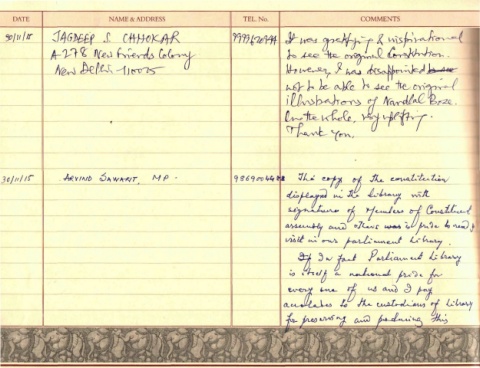 DATE NAME & ADDRESS TEL. No. COMMENTS
30/11/15 JAGDEEP S. CHHOKAR
A-278 New Friends Colony
New Delhi-110025
It was gratifying & inspirational
to see the original Constitution.
However, I was disappointed
not to be able to see the original
illustrations of Nandlal Bose.
On the whole, very uplifting.
Thank you.
30/11/15 ARVIND SAWANT, MP.
The copy of the constitution
displayed in the library with
signature of Members of Constituent
assembly and others was a pride to read &
visit in our parliament Library.
In fact Parliament Library
is itself a national pride for
every one of us and I pay
accolades to the custodians of Library
for preserving and producing this